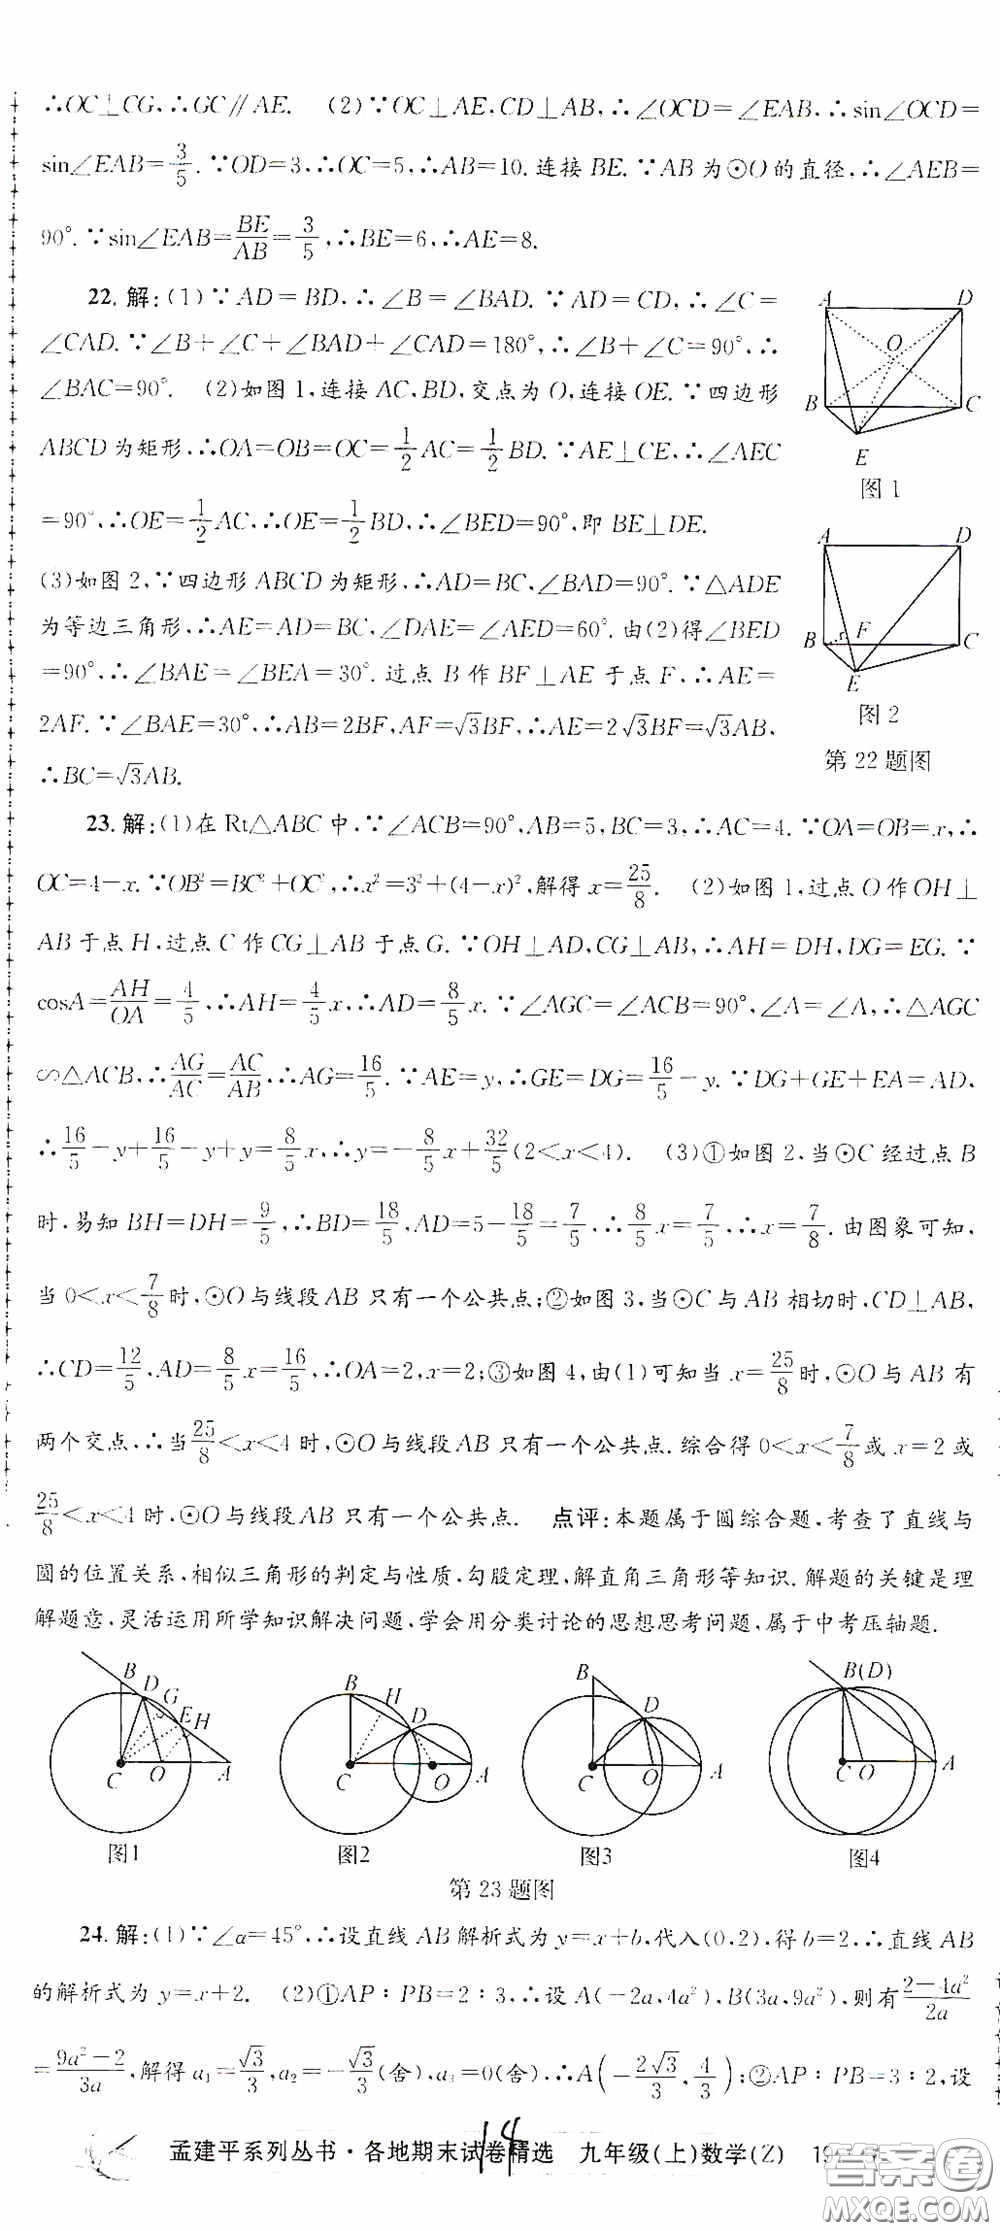 ∴OC⊥CG,∴GC∥AE.　(2)∵OC⊥AE,CD⊥AB,∴∠OCD=∠EAB,∴sin∠OCD=
sin∠EAB=3/5.∵OD=3,∴OC=5,∴AB=10.连接BE.∵AB为⊙O的直径,∴∠AEB=
90°.∵sin∠EAB=BE/AB=3/5,∴BE=6,∴AE=8.
22.解:(1)∵AD=BD,∴∠B=∠BAD.∵AD=CD,∴∠C=
∠CAD.∵∠B+∠C+∠BAD+∠CAD=180°,∴∠B+∠C=90°,∴
∠BAC=90°.　(2)如图1,连接AC,BD,交点为O,连接OE.∵四边形
ABCD为矩形,∴OA=OB=OC=1/2AC=1/2BD.∵AE⊥CE,∴∠AEC
=90°,∴OE=1/2AC,∴OE=1/2BD,∴∠BED=90°,即BE⊥DE.
(3)如图2,∵四边形ABCD为矩形,∴AD=BC,∠BAD=90°.∵△ADE
为等边三角形,∴AE=AD=BC,∠DAE=∠AED=60°.由(2)得∠BED
=90°,∴∠BAE=∠BEA=30°.过点B作BF⊥AE于点F,∴AE=
2AF.∵∠BAE=30°,∴AB=2BF,AF=√3BF,∴AE=2√3BF=√3AB,
∴BC=√3AB.
A D
O
B C
E
图1
A D
B F C
E
图2
第22题图
23.解:(1)在Rt△ABC中,∵∠ACB=90°,AB=5,BC=3,∴AC=4.∵OA=OB=x,∴
OC=4-x.∵OB²=BC²+OC²,∴x²=3²+(4-x)²,解得x=25/8.　(2)如图1,过点O作OH⊥
AB于点H,过点C作CG⊥AB于点G.∵OH⊥AD,CG⊥AB,∴AH=DH,DG=EG.∵
cosA=AH/OA=4/5,∴AH=4/5x,∴AD=8/5x.∵∠AGC=∠ACB=90°,∠A=∠A,∴△AGC
∽△ACB,∴AG/AC=AC/AB,∴AG=16/5.∵AE=y,∴GE=DG=16/5-y.∵DG+GE+EA=AD,
∴16/5-y+16/5-y+y=8/5x,∴y=-8/5x+32/5(2<x<4).　(3)①如图2,当⊙C经过点B
时,易知BH=DH=9/5,∴BD=18/5,AD=5-18/5=7/5,∴8/5x=7/5,∴x=7/8.由图象可知,
当0<x<7/8时,⊙O与线段AB只有一个公共点;②如图3,当⊙C与AB相切时,CD⊥AB,
∴CD=12/5,AD=8/5x=16/5,∴OA=2,x=2;③如图4,由(1)可知当x=25/8时,⊙O与AB有
两个交点,∴当25/8<x<4时,⊙O与线段AB只有一个公共点.综合得0<x<7/8或x=2或
25/8<x<4时,⊙O与线段AB只有一个公共点.　点评:本题属于圆综合题,考查了直线与
圆的位置关系,相似三角形的判定与性质,勾股定理,解直角三角形等知识.解题的关键是理
解题意,灵活运用所学知识解决问题,学会用分类讨论的思想思考问题,属于中考压轴题.
B D G E H C O A
图1
B H D C O A
图2
B D C O A
图3
B(D) C O A
图4
第23题图
24.解:(1)∵∠α=45°,∴设直线AB解析式为y=x+b,代入(0,2),得b=2,∴直线AB
的解析式为y=x+2.　(2)①AP:PB=2:3,∴设A(-2a,4a²),B(3a,9a²),则有(2-4a²)/2a
=(9a²-2)/3a,解得a₁=√3/3,a₂=-√3/3(舍),a₃=0(舍).∴A(-2√3/3,4/3);②AP:PB=3:2,设
孟建平系列丛书·各地期末试卷精选　九年级(上)数学(Z)
14
答案圈
MXQE.COM